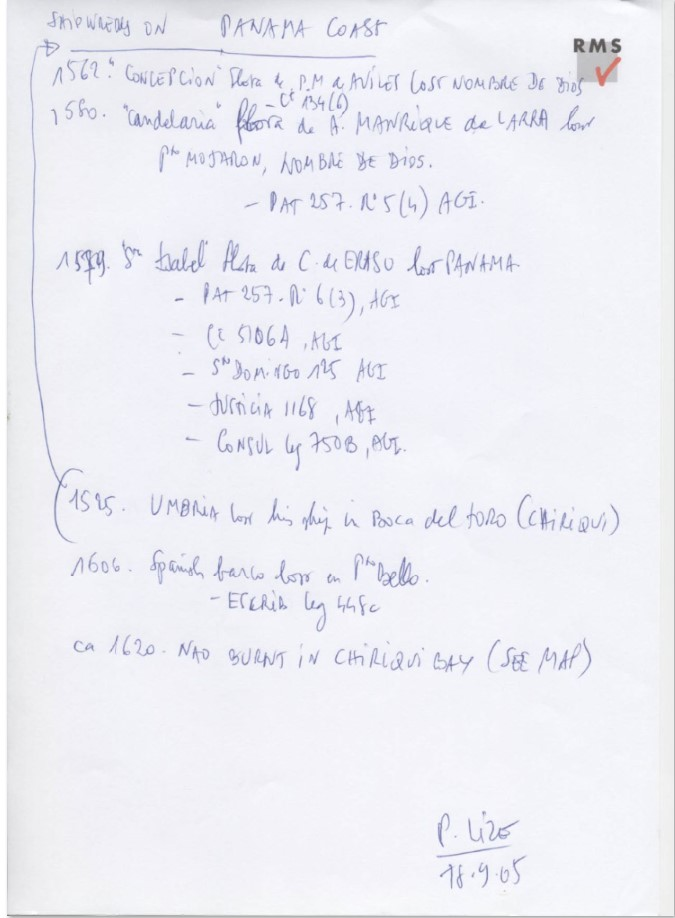 SHIPWRECKS ON PANAMA COAST
RMS
1562. "CONCEPCION" flota de P.M de AVILES lost NOMBRE DE DIOS
- Ct 134(6)
1580. "Candelaria" flota de A. MANRIQUE de LARRA lost
Pto MOJARON, NOMBRE DE DIOS.
- PAT 257. R° 5(4) AGI.
Sta Isabel" flota de C. de ERASO lost PANAMA
- PAT 257. R° 6(3), AGI
- CT 5106A, AGI
- Sto DOMINGO 125 AGI
- JUSTICIA 1168, AGI
- CONSUL leg 750B, AGI.
1525. UMBRIA lost his ship in Boca del TORO (CHIRIQUI)
1606. Spanish barco lost en Pto Bello.
- leg 448c
ca 1620. NAO BURNT IN CHIRIQUI BAY (SEE MAP)
P. Lize
18.9.05